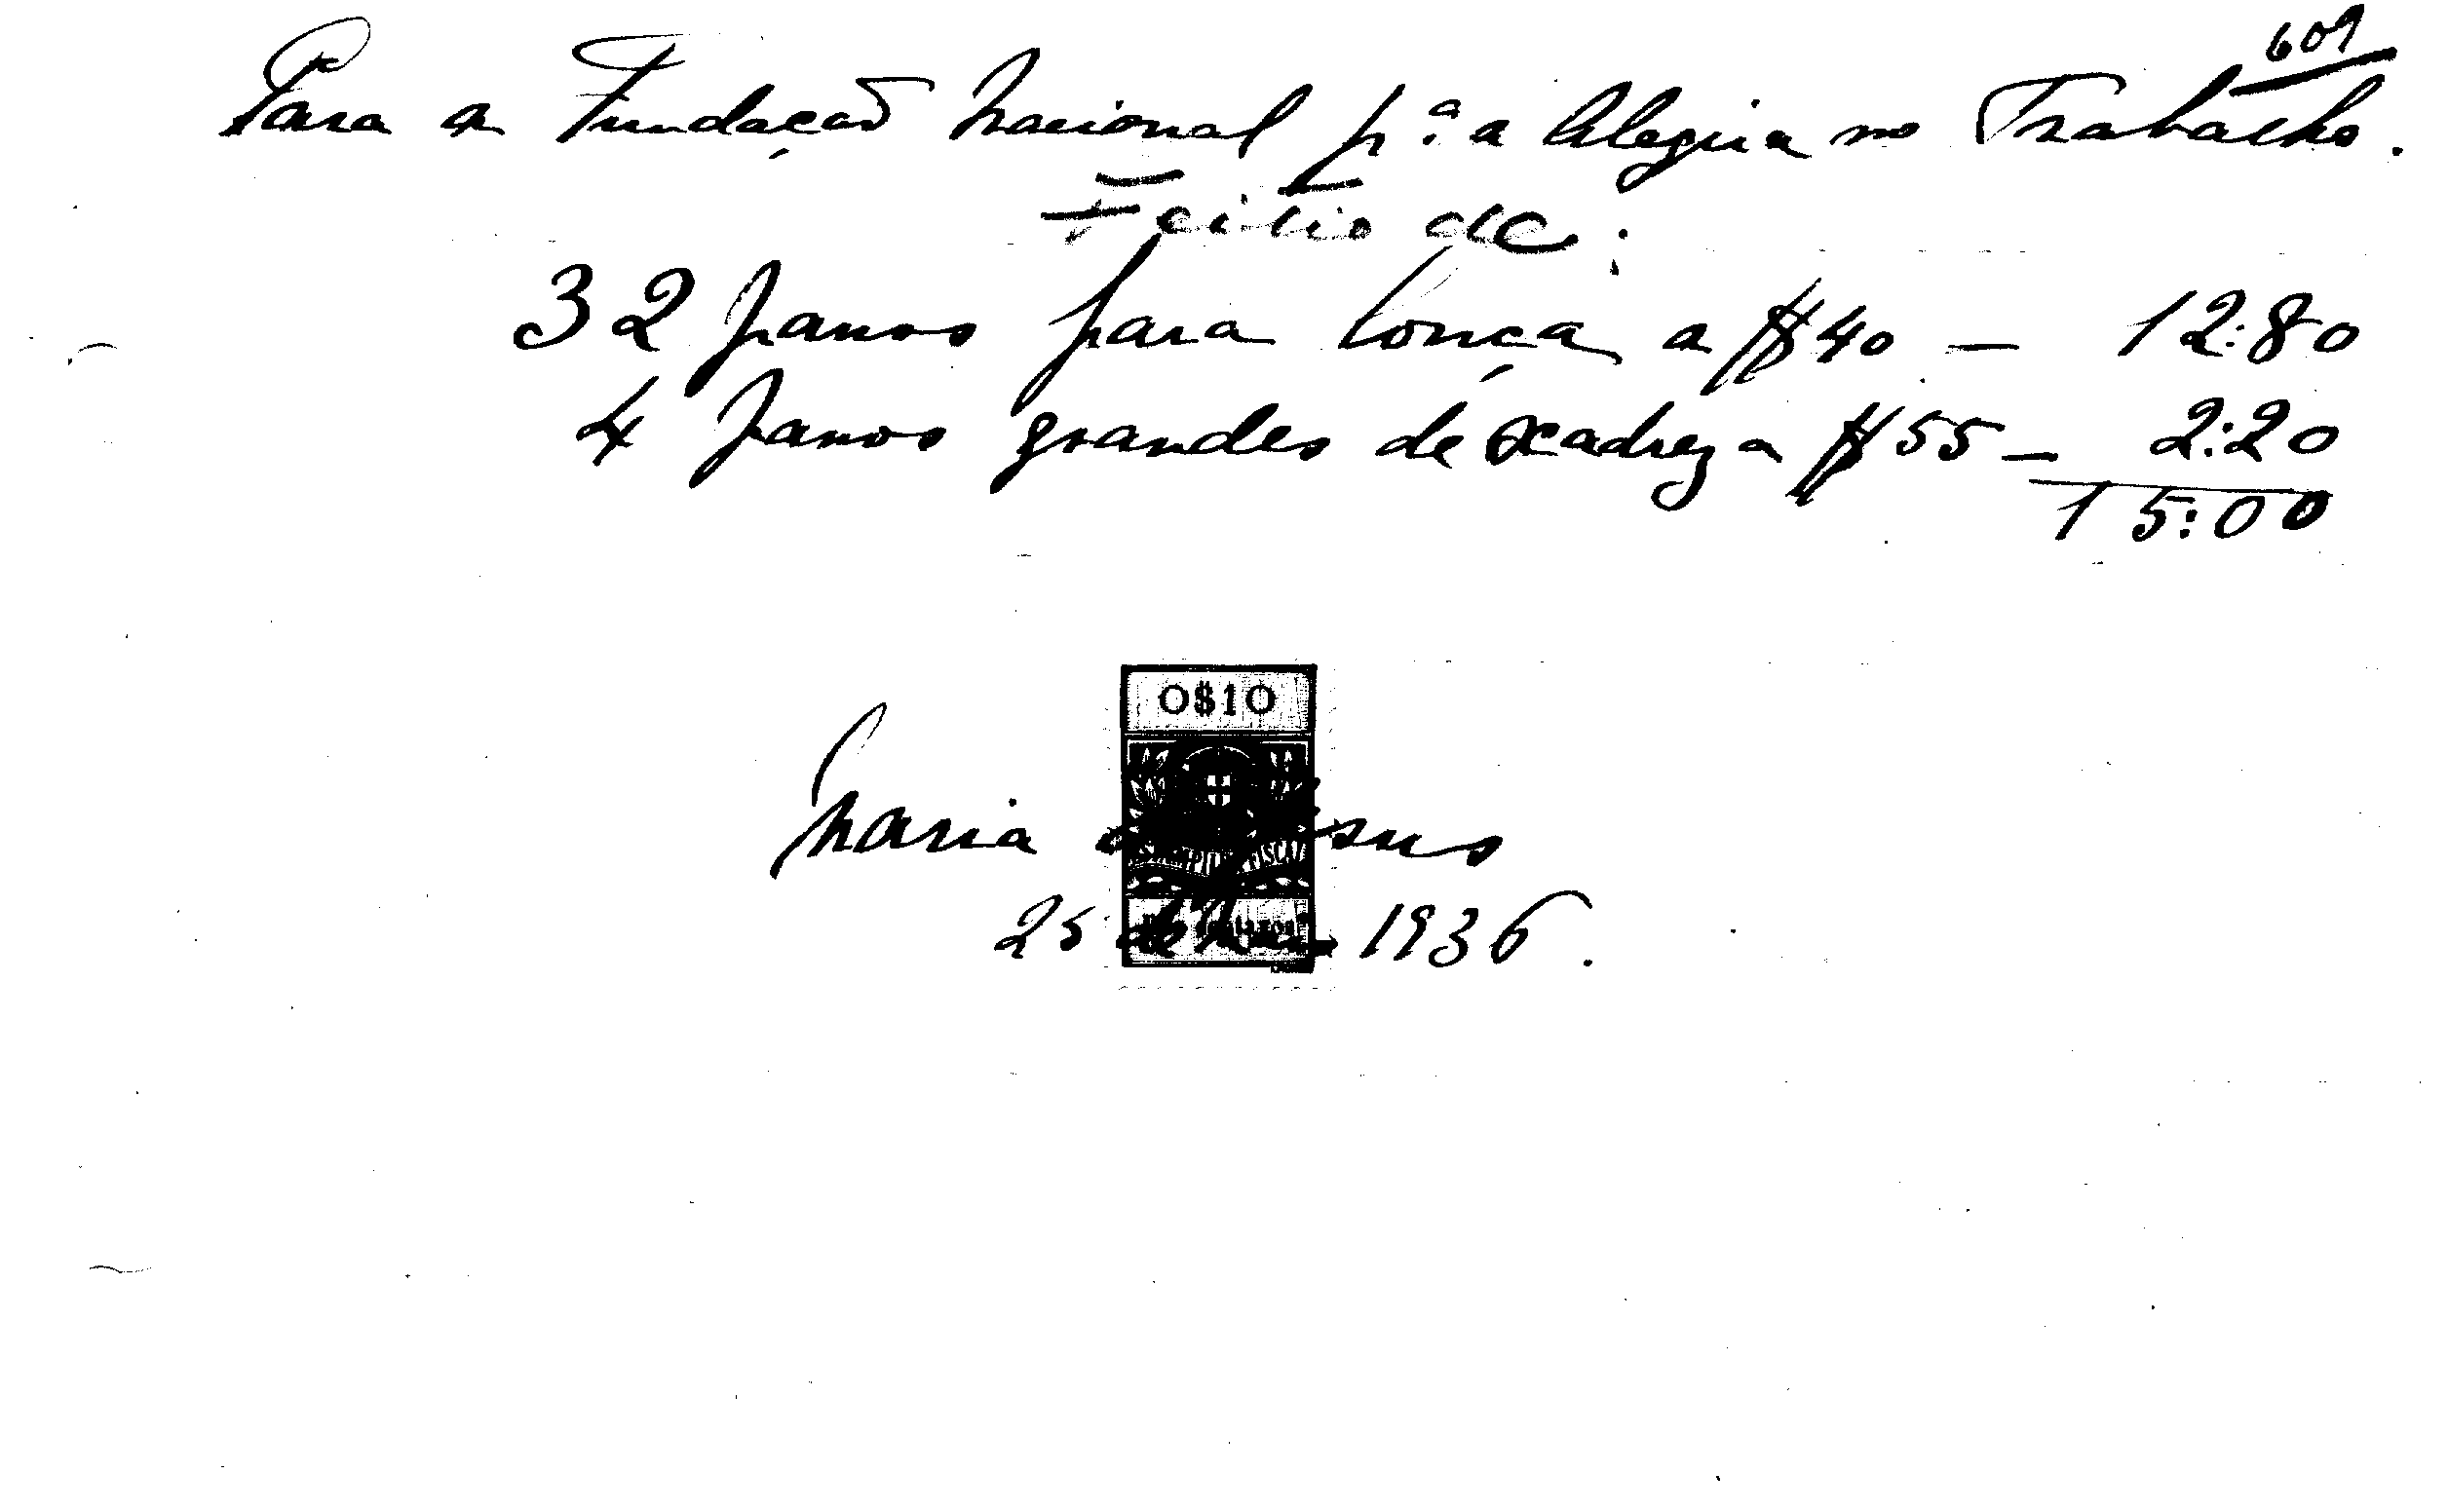 609
Para a Fundação Nacional p.ª a Alegria no Trabalho.
Feitio de:
32 panos para louça a $40 — 12:80
4 panos grandes de xadrez a $55 — 2:20
15:00
0$10
Maria de Jesus
ESTAMPILHA FISCAL
25 de 1936.